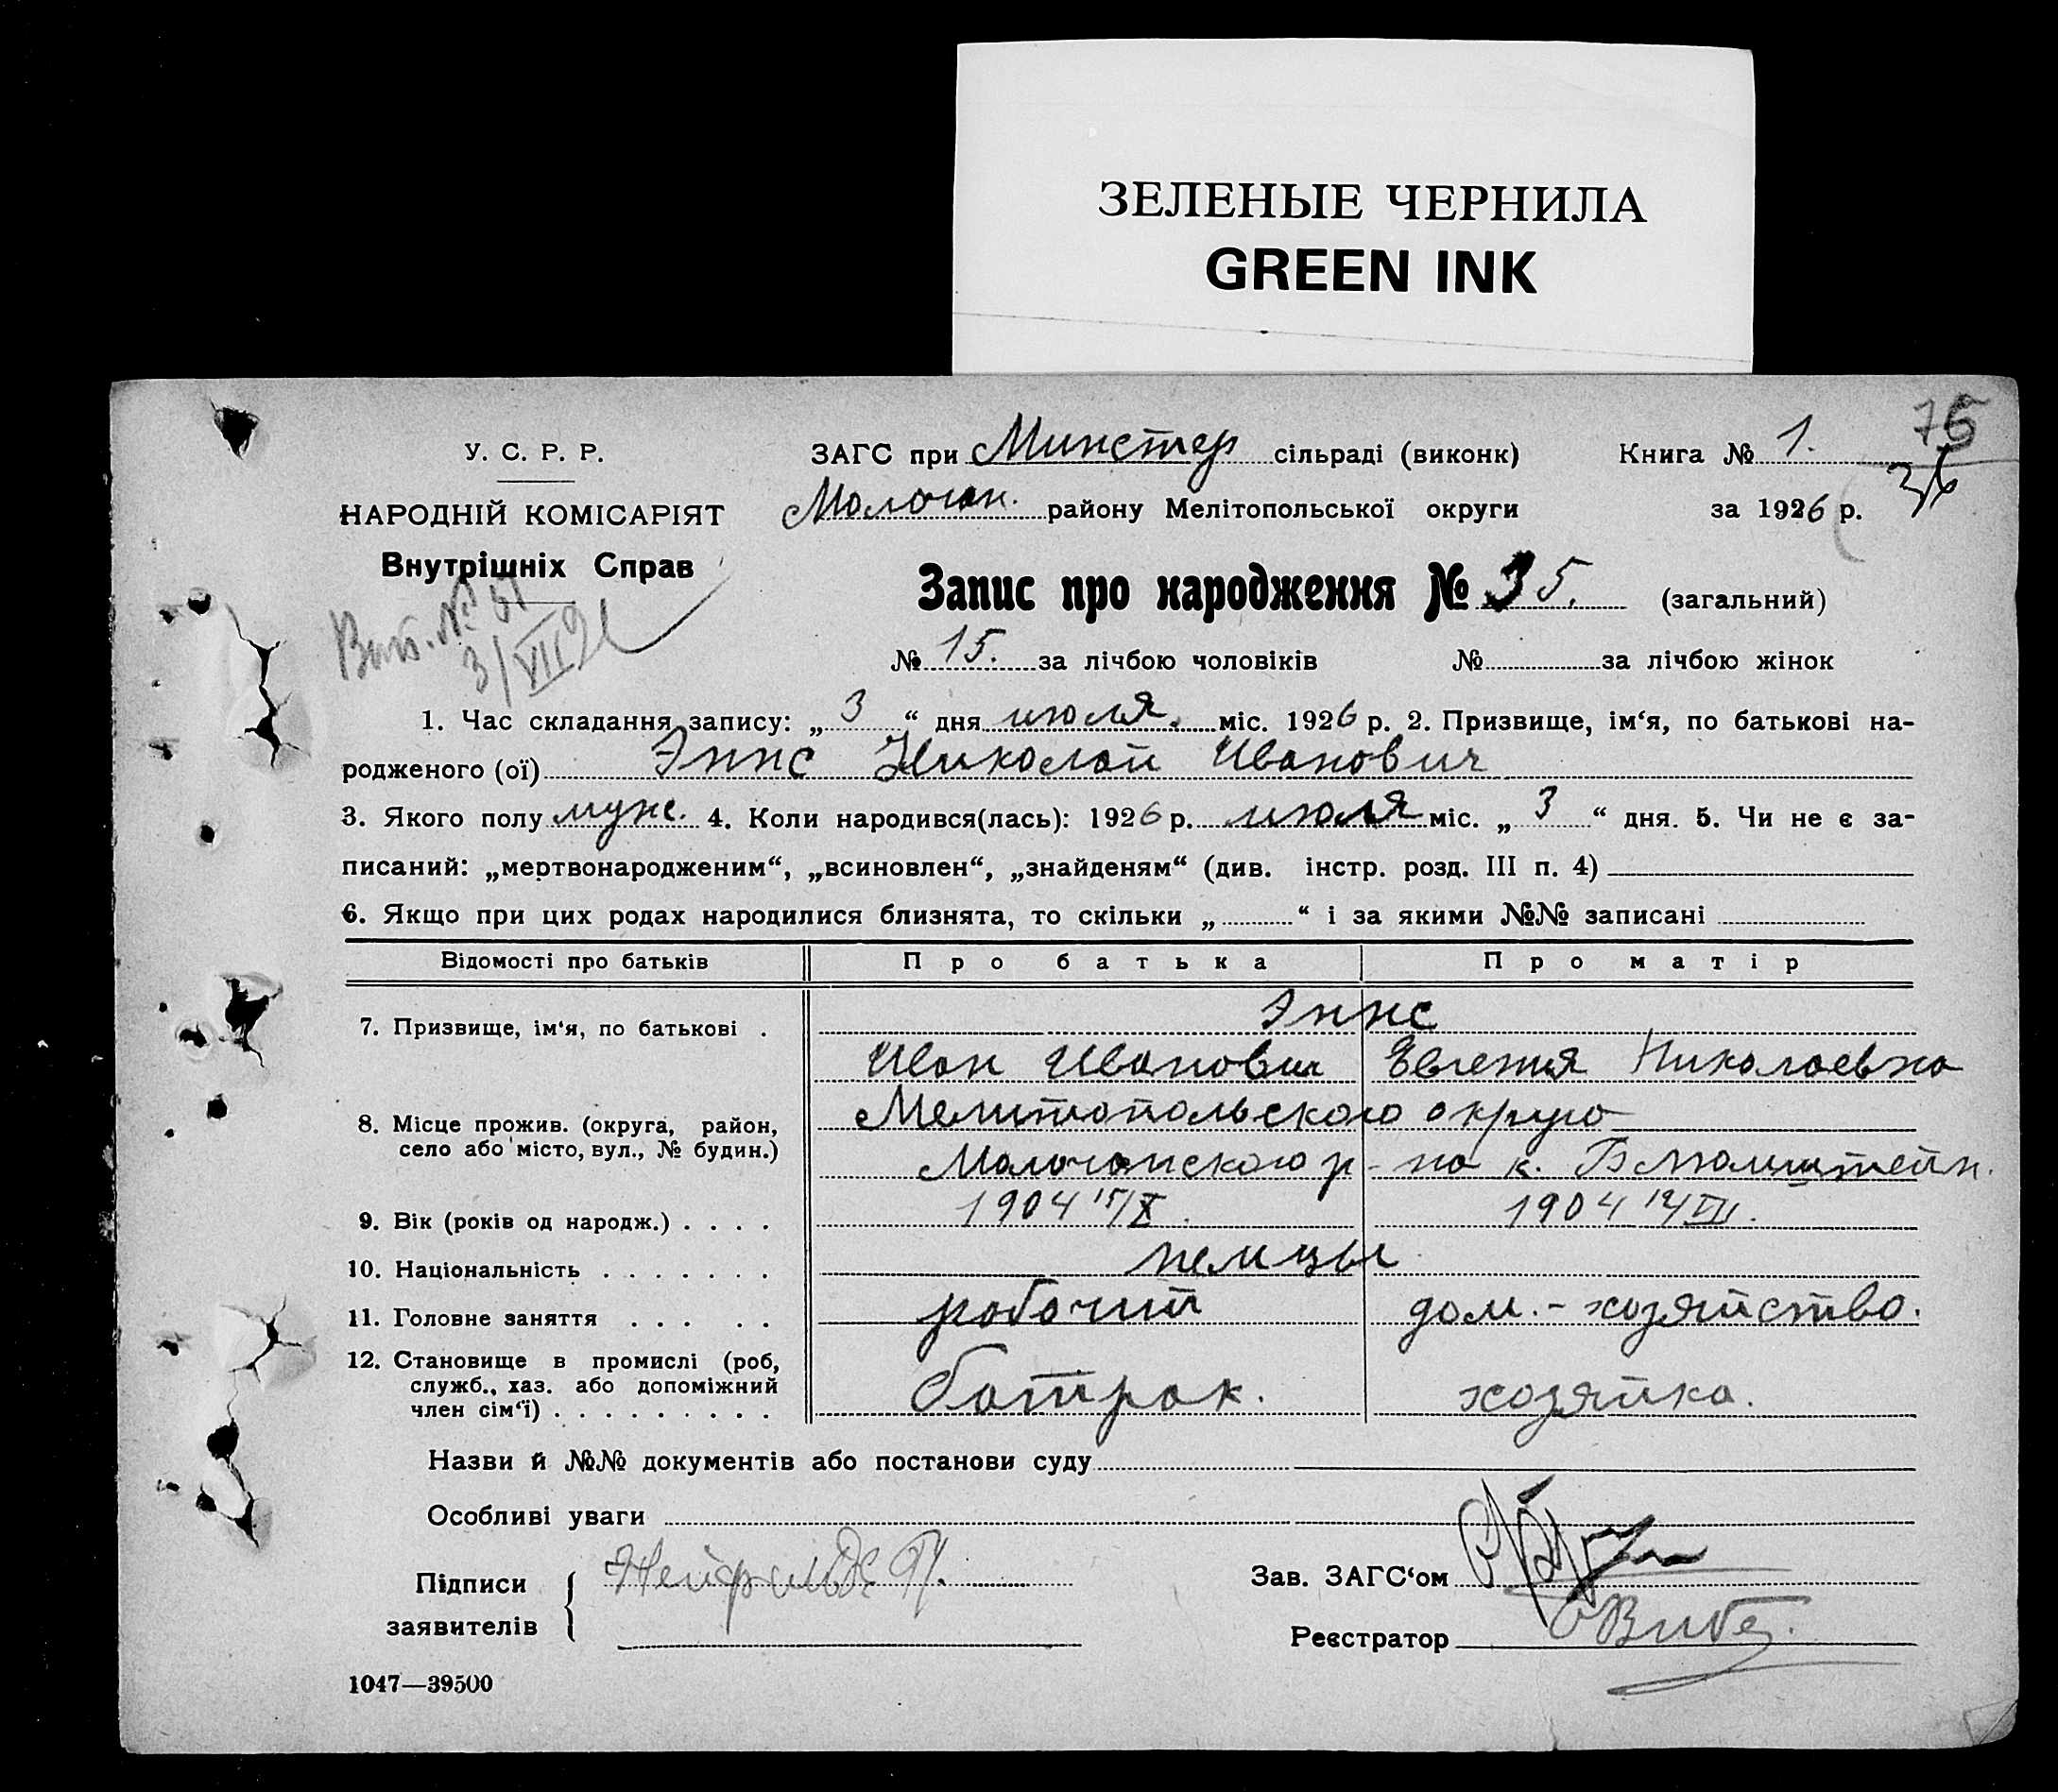 ЗЕЛЕНЫЕ ЧЕРНИЛА
GREEN INK
75
36
У. С. Р. Р.
НАРОДНІЙ КОМІСАРІЯТ
Внутрішніх Справ
3/VII
ЗАГС при Минстер сільраді (виконк) Книга № 1.
Молочан. району Мелітопольської округи за 1926 р.
Запис про народження № 35. (загальний)
№ 15. за лічбою чоловіків № за лічбою жінок
1. Час складання запису: „ 3 “ дня июля. міс. 1926 р. 2. Призвище, ім‘я, по батькові на-
родженого (ої) Эннс Николай Иванович
3. Якого полу муж. 4. Коли народився(лась): 1926 р. июля міс. „ 3 “ дня. 5. Чи не є за-
писаний: „мертвонародженим“, „всиновлен“, „знайденям“ (див. інстр. розд. III п. 4)
6. Якщо при цих родах народилися близнята, то скільки „ “ і за якими №№ записані
Відомості про батьків Про батька Про матір
7. Призвище, ім‘я, по батькові . Эннс
Иван Иванович Евгения Николаевна
8. Місце прожив. (округа, район, село або місто, вул., № будин.) Мелитопольского округа
Молочанского р-на к. Блюмштейн.
9. Вік (років од народж.) . . . . 1904 15/X. 1904 14/VII.
10. Національність . . . . . . . немцы
11. Головне заняття . . . . . рабочий дом.-хозяйство.
12. Становище в промислі (роб, служб., хаз. або допоміжний член сім‘ї) . . . . . . . . . батрак. хозяйка.
Назви й №№ документів або постанови суду
Особливі уваги
Підписи заявителів
Зав. ЗАГС‘ом
Реєстратор Вибе.
1047—39500